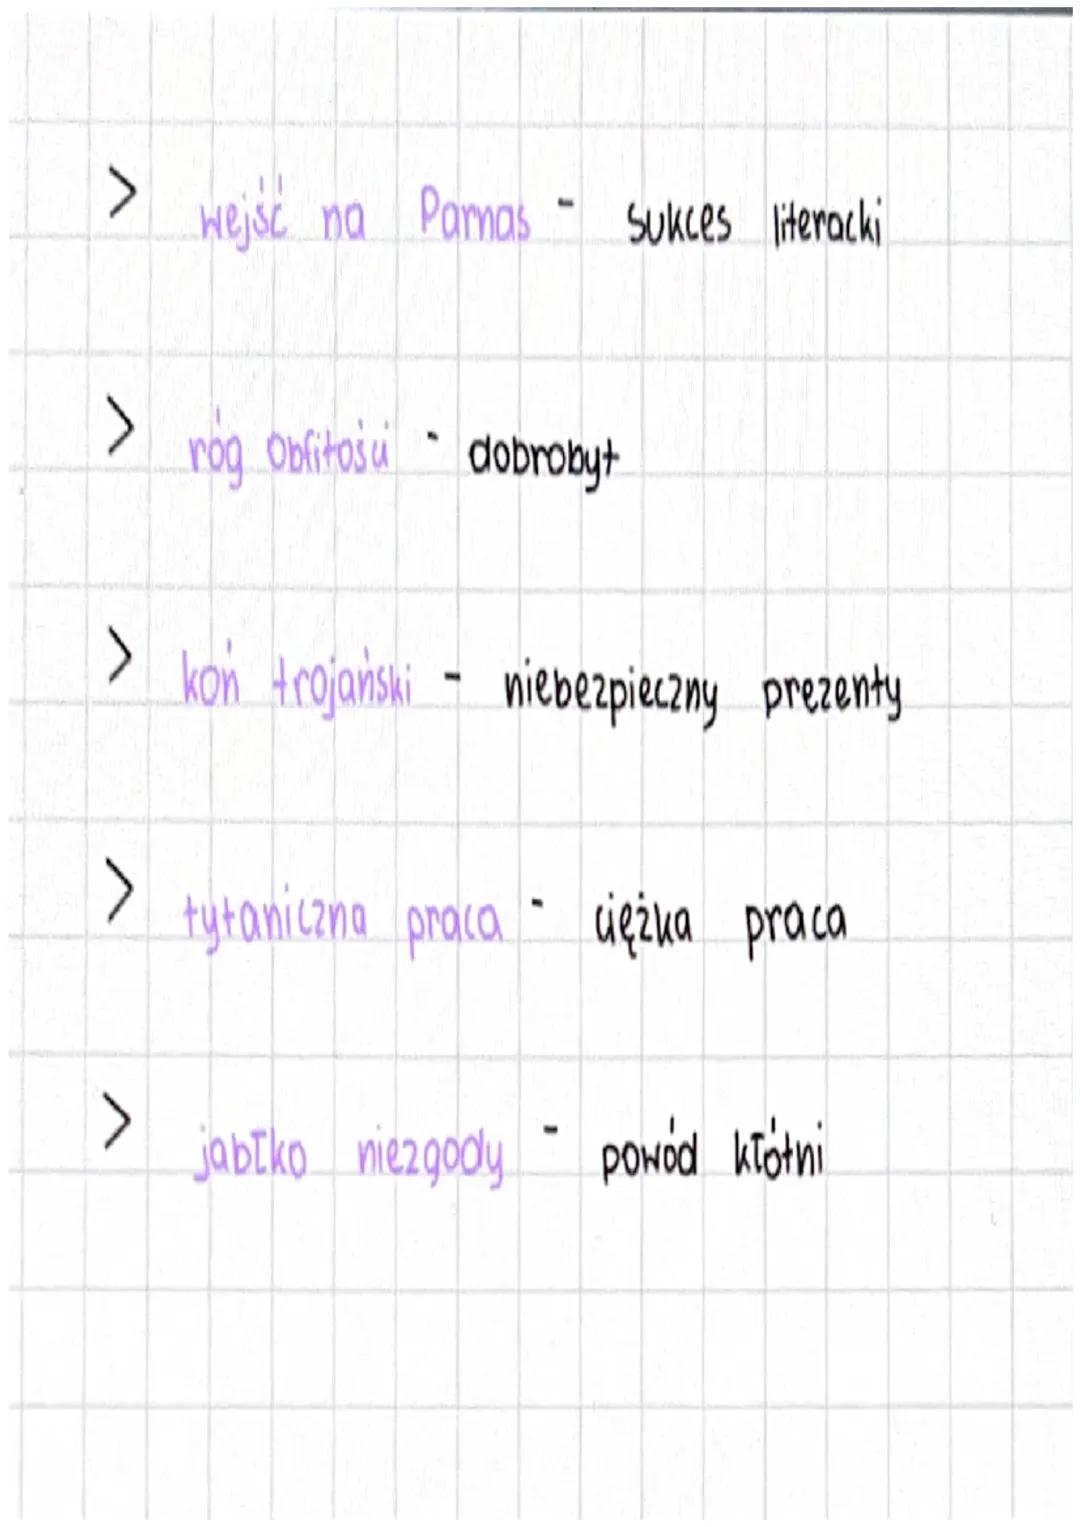 > wejść na Parnas - sukces literacki
> róg obfitości - dobrobyt
> koń trojański - niebezpieczny prezenty
> tytaniczna praca - ciężka praca
> jabłko niezgody - powód kłótni